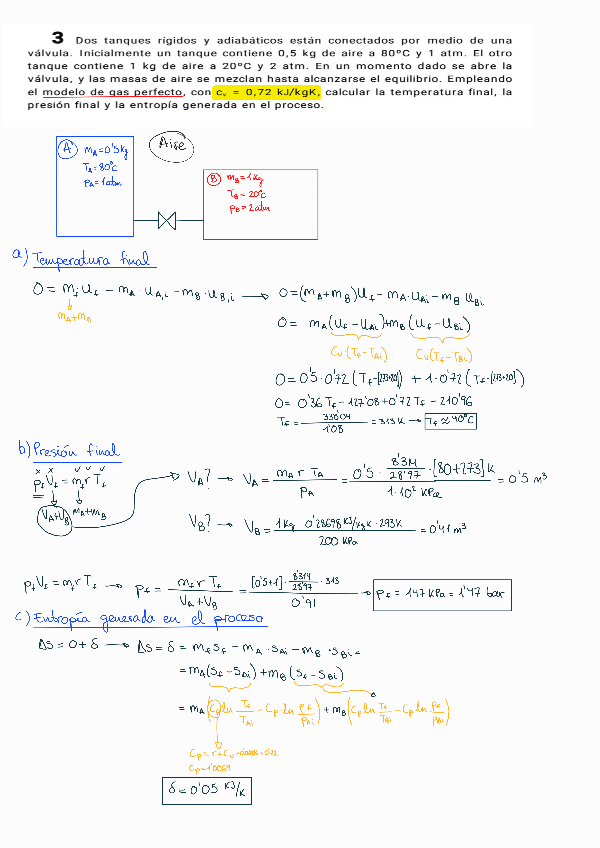 3 Dos tanques rígidos y adiabáticos están conectados por medio de una
válvula. Inicialmente un tanque contiene 0,5 kg de aire a 80ºC y 1 atm. El otro
tanque contiene 1 kg de aire a 20ºC y 2 atm. En un momento dado se abre la
válvula, y las masas de aire se mezclan hasta alcanzarse el equilibrio. Empleando
el modelo de gas perfecto, con cᵥ = 0,72 kJ/kgK, calcular la temperatura final, la
presión final y la entropía generada en el proceso.
Aire
A m_A=0'5kg
T_A=80ºC
p_A=1atm
B m_B=1kg
T_B=20ºC
p_B=2atm
a) Temperatura final
0 = m_f u_f - m_A · u_A,i - m_B · u_B,i → 0=(m_A+m_B)u_f - m_A·u_Ai - m_B u_Bi
m_A+m_B
0= m_A(u_f - u_Ai)+m_B(u_f - u_Bi)
C_v(T_f-T_Ai) C_v(T_f-T_Bi)
0=0'5·0'72(T_f-[273+80]) + 1·0'72(T_f-[273+20])
0= 0'36 T_f - 127'08+0'72 T_f - 210'96
T_f = 338'04/1'08 = 313K → T_f ≈ 40ºC
b) Presión final
x x v v v
p_f V_f = m_f r T_f
V_A+V_B m_A+m_B
V_A? → V_A = m_A r T_A/p_A = 0'5 · 8'314/28'97 · [80+273]K/1·10² kPa = 0'5 m³
V_B? → V_B = 1kg 0'28698 KJ/kgK · 293K/200 kPa = 0'41 m³
p_f V_f = m_f r T_f → p_f = m_f r T_f/V_A+V_B = [0'5+1] · 8'314/28'97 · 313/0'91 → p_f = 147 kPa = 1'47 bar
c) Entropía generada en el proceso
Δs = 0+δ → Δs = δ = m_f s_f - m_A · s_Ai - m_B · s_Bi =
= m_A(s_f - s_Ai) + m_B(s_f - s_Bi)
= m_A(C_p ln T_f/T_Ai - C_p · ln p_f/p_Ai) + m_B(C_p ln T_f/T_Bi - C_p ln p_f/p_Bi)
C_p = r+C_v
C_p=1'0069
δ = 0'05 KJ/K